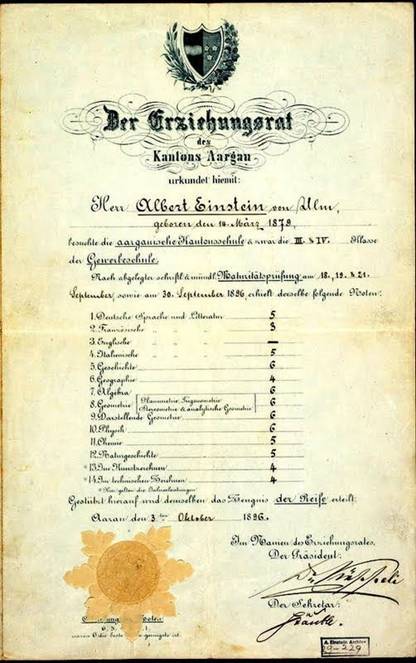 Der Erziehungsrat
des
Kantons Aargau
urkundet hiemit:
Herr Albert Einstein von Ulm,
geboren den 14. März 1879,
besuchte die aargauische Kantonsschule & zwar die III. & IV. Klasse
der Gewerbeschule.
Nach abgelegter schriftl. & mündl. Maturitätsprüfung am 18., 19. & 21.
September, sowie am 30. September 1896, erhielt derselbe folgende Noten:
1. Deutsche Sprache und Litteratur 5
2. Französische " " " 3
3. Englische " " " —
4. Italienische " " " 5
5. Geschichte 6
6. Geographie 4
7. Algebra 6
8. Geometrie Planimetrie, Trigonometrie Stereometrie & analytische Geometrie 6
9. Darstellende Geometrie 6
10. Physik 6
11. Chemie 5
12. Naturgeschichte 5
*13. Im Kunstzeichnen 4
*14. Im technischen Zeichnen 4
* Hier gelten die Jahresleistungen.
Gestützt hierauf wird demselben das Zeugnis der Reife erteilt.
Aarau den 3ten Oktober 1896.
Im Namen des Erziehungsrates,
Der Präsident:
Der Sekretär:
A. Einstein Archive
29-229